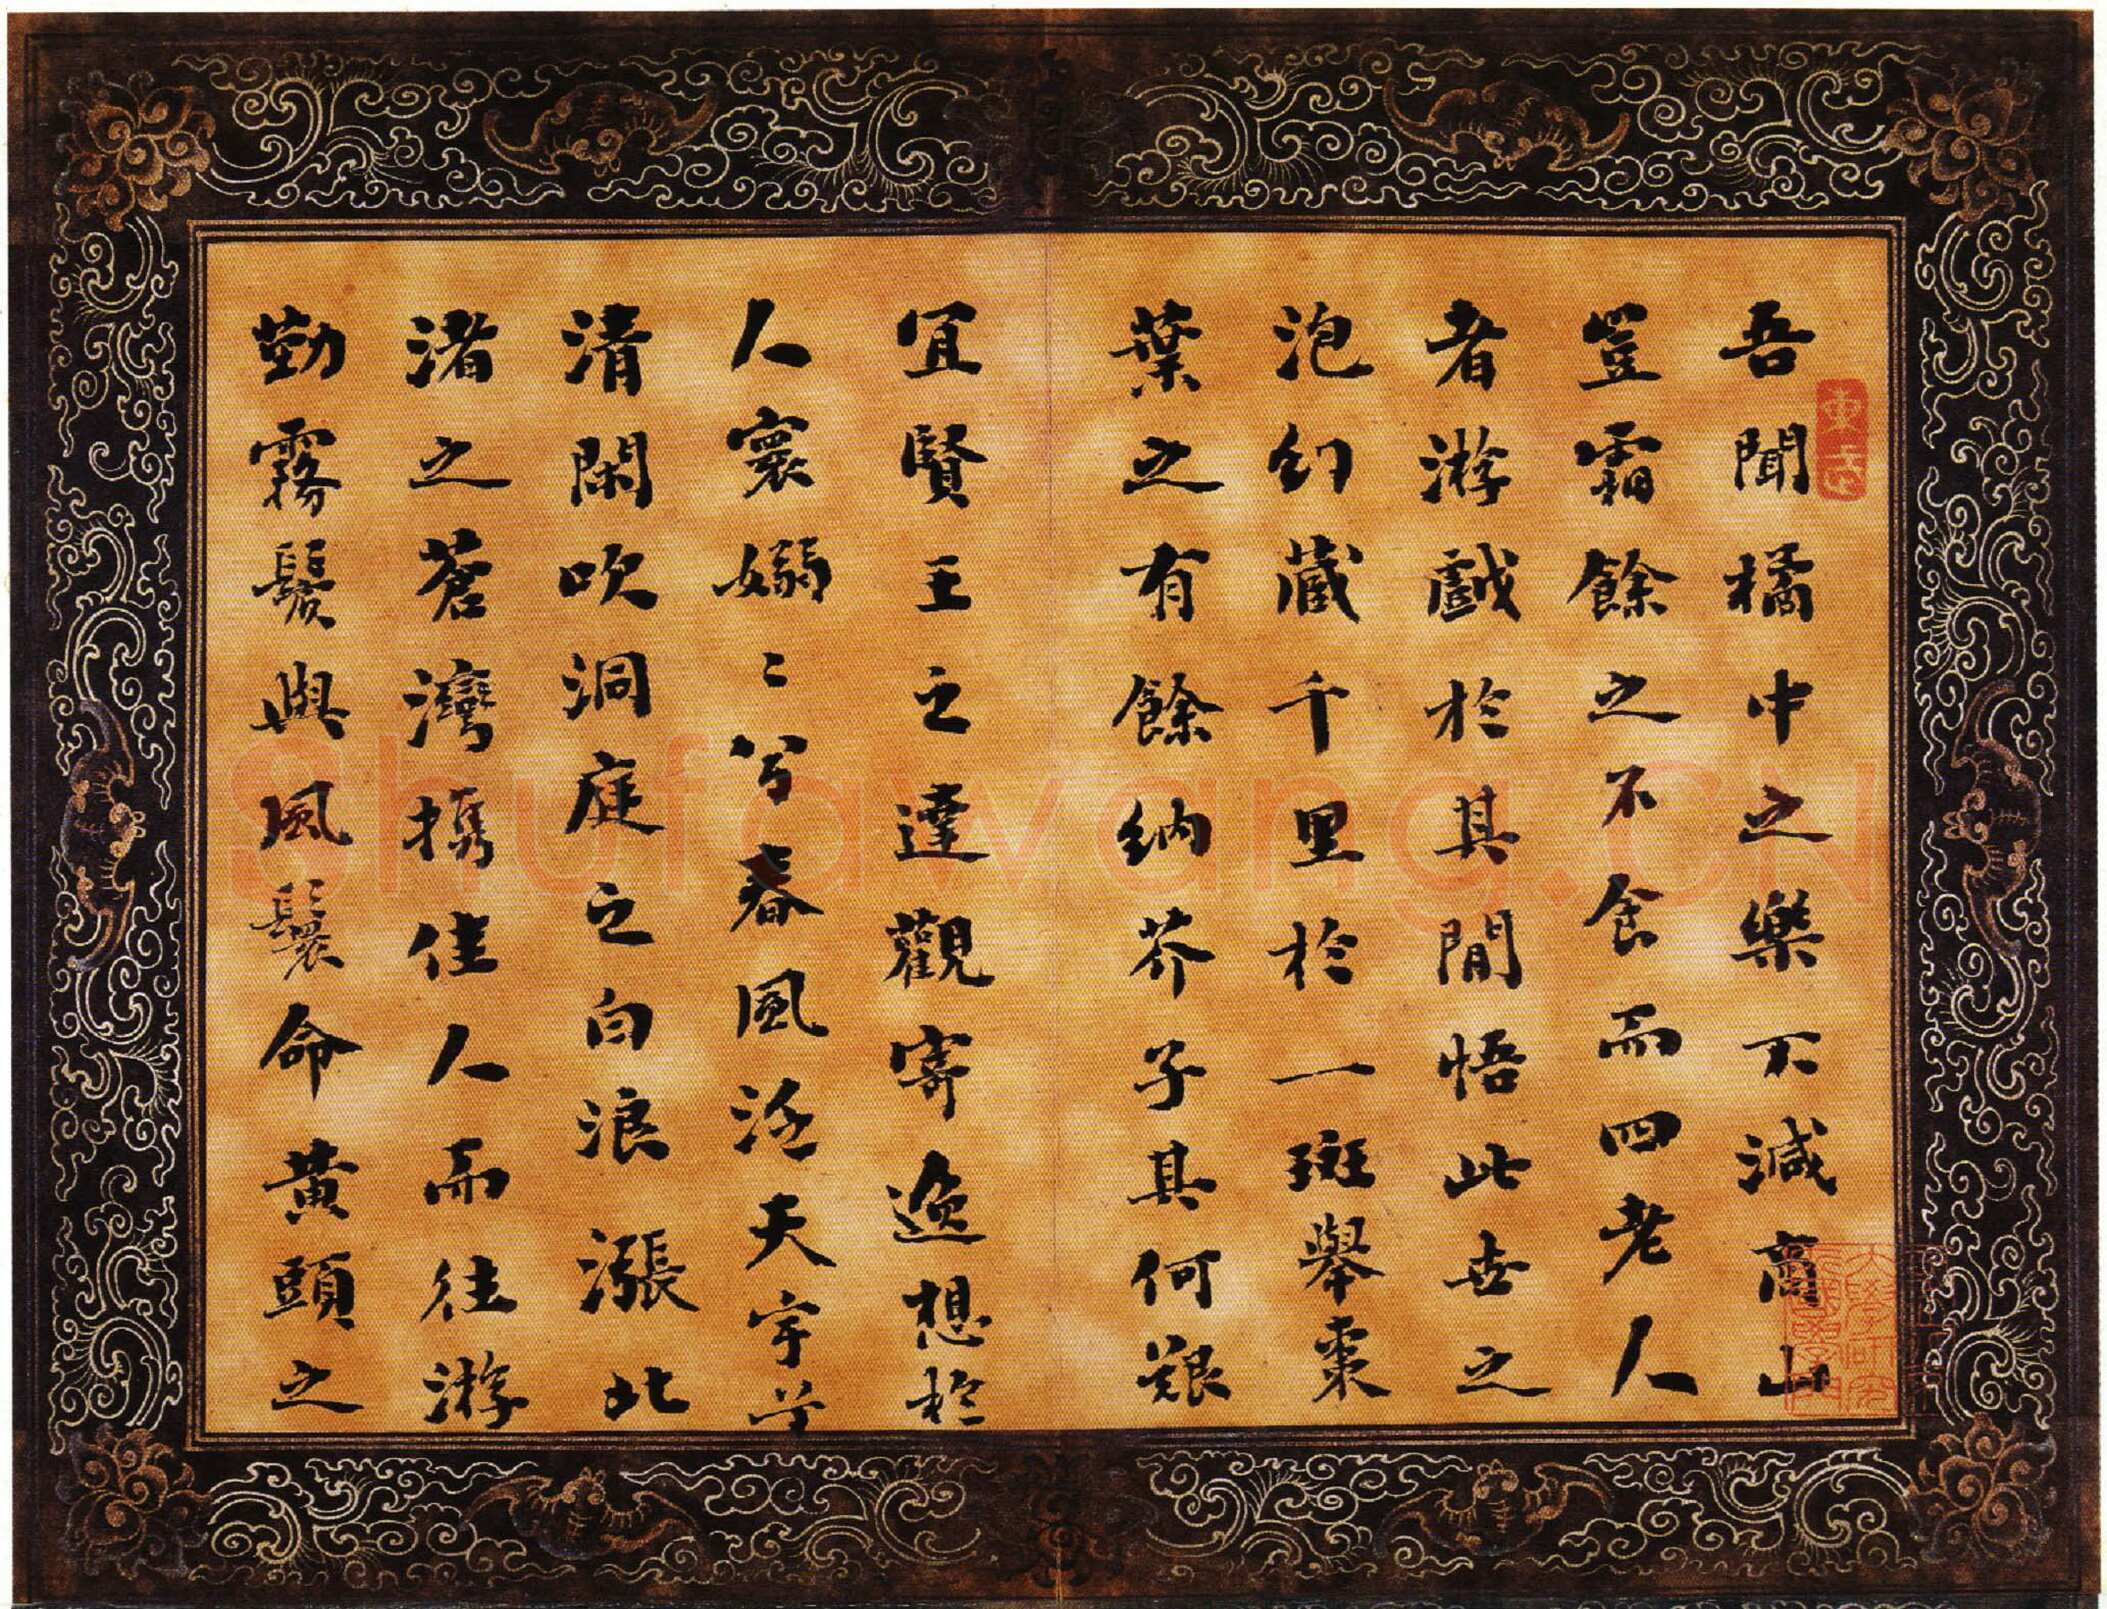 吾聞橘中之樂不減商山
豈霜餘之不食而四老人
者游戲於其間悟此世之
泡幻藏千里於一斑舉棗
葉之有餘納芥子其何艱
宜賢王之達觀寄逸想於
人寰嫋〻兮春風泛天宇兮
清閑吹洞庭之白浪漲北
渚之蒼灣攜佳人而往游
勤霧鬢與風鬟命黃頭之
Shufawang.CN